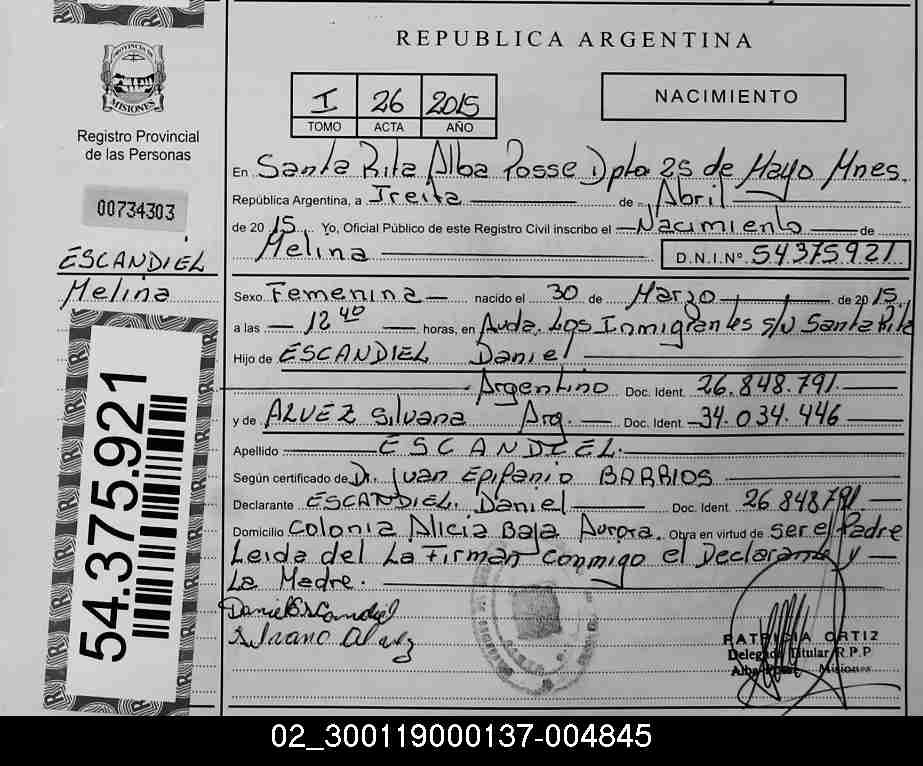 REPUBLICA ARGENTINA
PROVINCIA DE
MISIONES
Registro Provincial
de las Personas
00734303
ESCANDIEL
Melina
54.375.921
I 26 2015
TOMO ACTA AÑO
NACIMIENTO
En Santa Rita Alba Posse Dpto 25 de Mayo Mnes.
República Argentina, a Treita de Abril
de 2015. Yo, Oficial Público de este Registro Civil inscribo el Nacimiento de
Melina D.N.I.Nº 54.375.921
Sexo Femenina nacido el 30 de Marzo de 2015.
a las 12 40 horas, en Avda. Los Inmigrantes s/n Santa Rita
Hijo de ESCANDIEL Daniel
Argentino Doc. Ident. 26.848.791.
y de ALVEZ Silvana Arg. Doc. Ident 34.034.446
Apellido ESCANDIEL.
Según certificado de Dr. Juan Epifanio BARRIOS
Declarante ESCANDIEL, Daniel Doc. Ident. 26.848.791
Domicilio Colonia Alicia Baja Aurora. Obra en virtud de ser el Padre
Leida del La Firman conmigo el Declarante y
La Madre.
Daniel Escandiel
Silvana Alvez
PATRICIA ORTIZ
Delegada Titular R.P.P
Alba Posse Misiones
02_300119000137-004845